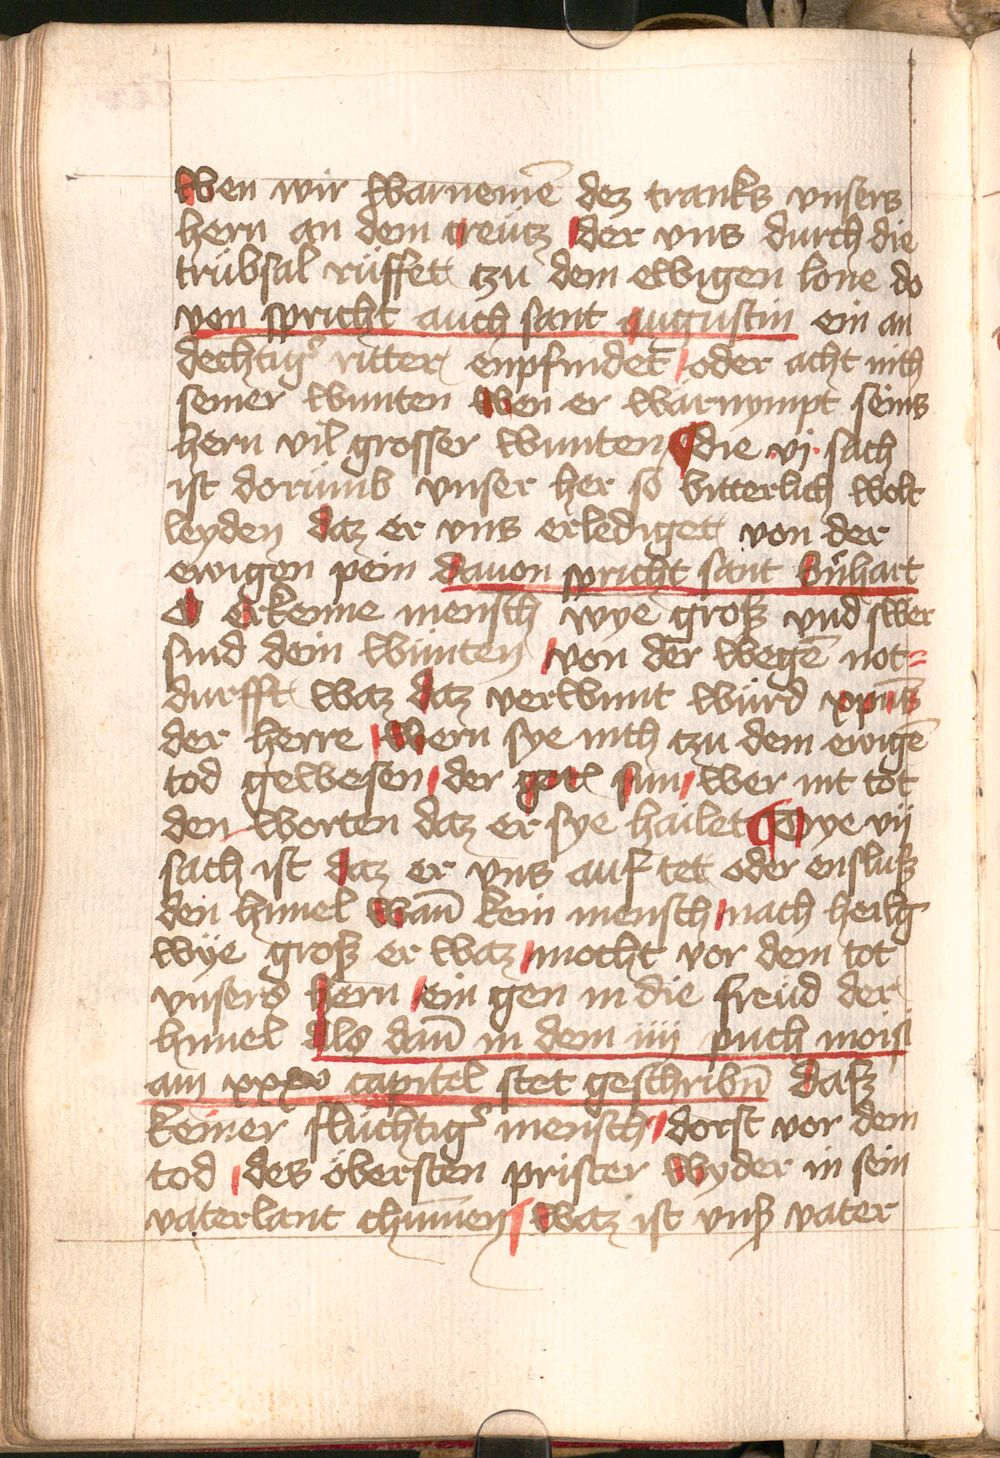 Wen wir warnemē dez tranks vnsers
hern an dem creütz der vns durch die
trübsal rüffet tzu dem ewigen lone do
von spricht auch sant augustin ein an
dechtigˀ ritter enpfindet oder acht nith
seiner wunten wen er warnympt seins
hern vil grosser wunten ¶ die .vj. sach
ist dorümb vnser her so bitterlich wolt
leyden daz er vns erlediget von der
ewigen pein dauon spricht sant Bn̈hart
O Erkenne mensch wye groß vnd swer
sind dein wünten von der wegē not=
durfft waz daz verwunt würd xpūs
der herre wern sye nith tzu dem ewigē
tod gewesen der gotˀ sun wer nit töt
den worten daz er sye hailet ¶ Dye vij
sach ist daz er vns auf tet oder ensluß
den himel wan̄ kein mensch nach heilg
wye groß er waz mocht vor dem tot
vnsers hern ein gen in die freüd der
himel Als dan̄ in dem iiij puch moisi
am xxxv capitel stet geschribn̄ dasz
keiner flüchtigˀ mensch dorst vor dem
tod des öbersten prister wyder in sein
vaterlant chum̄en waz ist vnsˀ vater